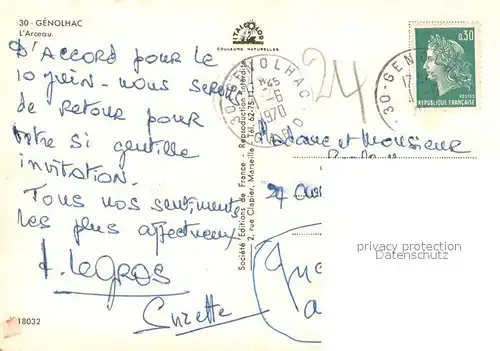 30 - GÉNOLHAC
L'Arceau.
ITALCOLOR
COULEURS NATURELLES
D'ACCORD pour le
10 Juin - nous serons
de retour pour
votre si gentille
invitation.
Tous nos sentiments
les plus affectueux
LEGROS
Suzette
18032
Société Editions de France - Reproduction Interdite
2, rue Clapier, Marseille - Tél. 62-75
30-GENOLHAC
-6
1970
GARD
24
0,30
POSTES
REPUBLIQUE FRANÇAISE
-30-GEN
Madame et Monsieur
27
privacy protection
Datenschutz